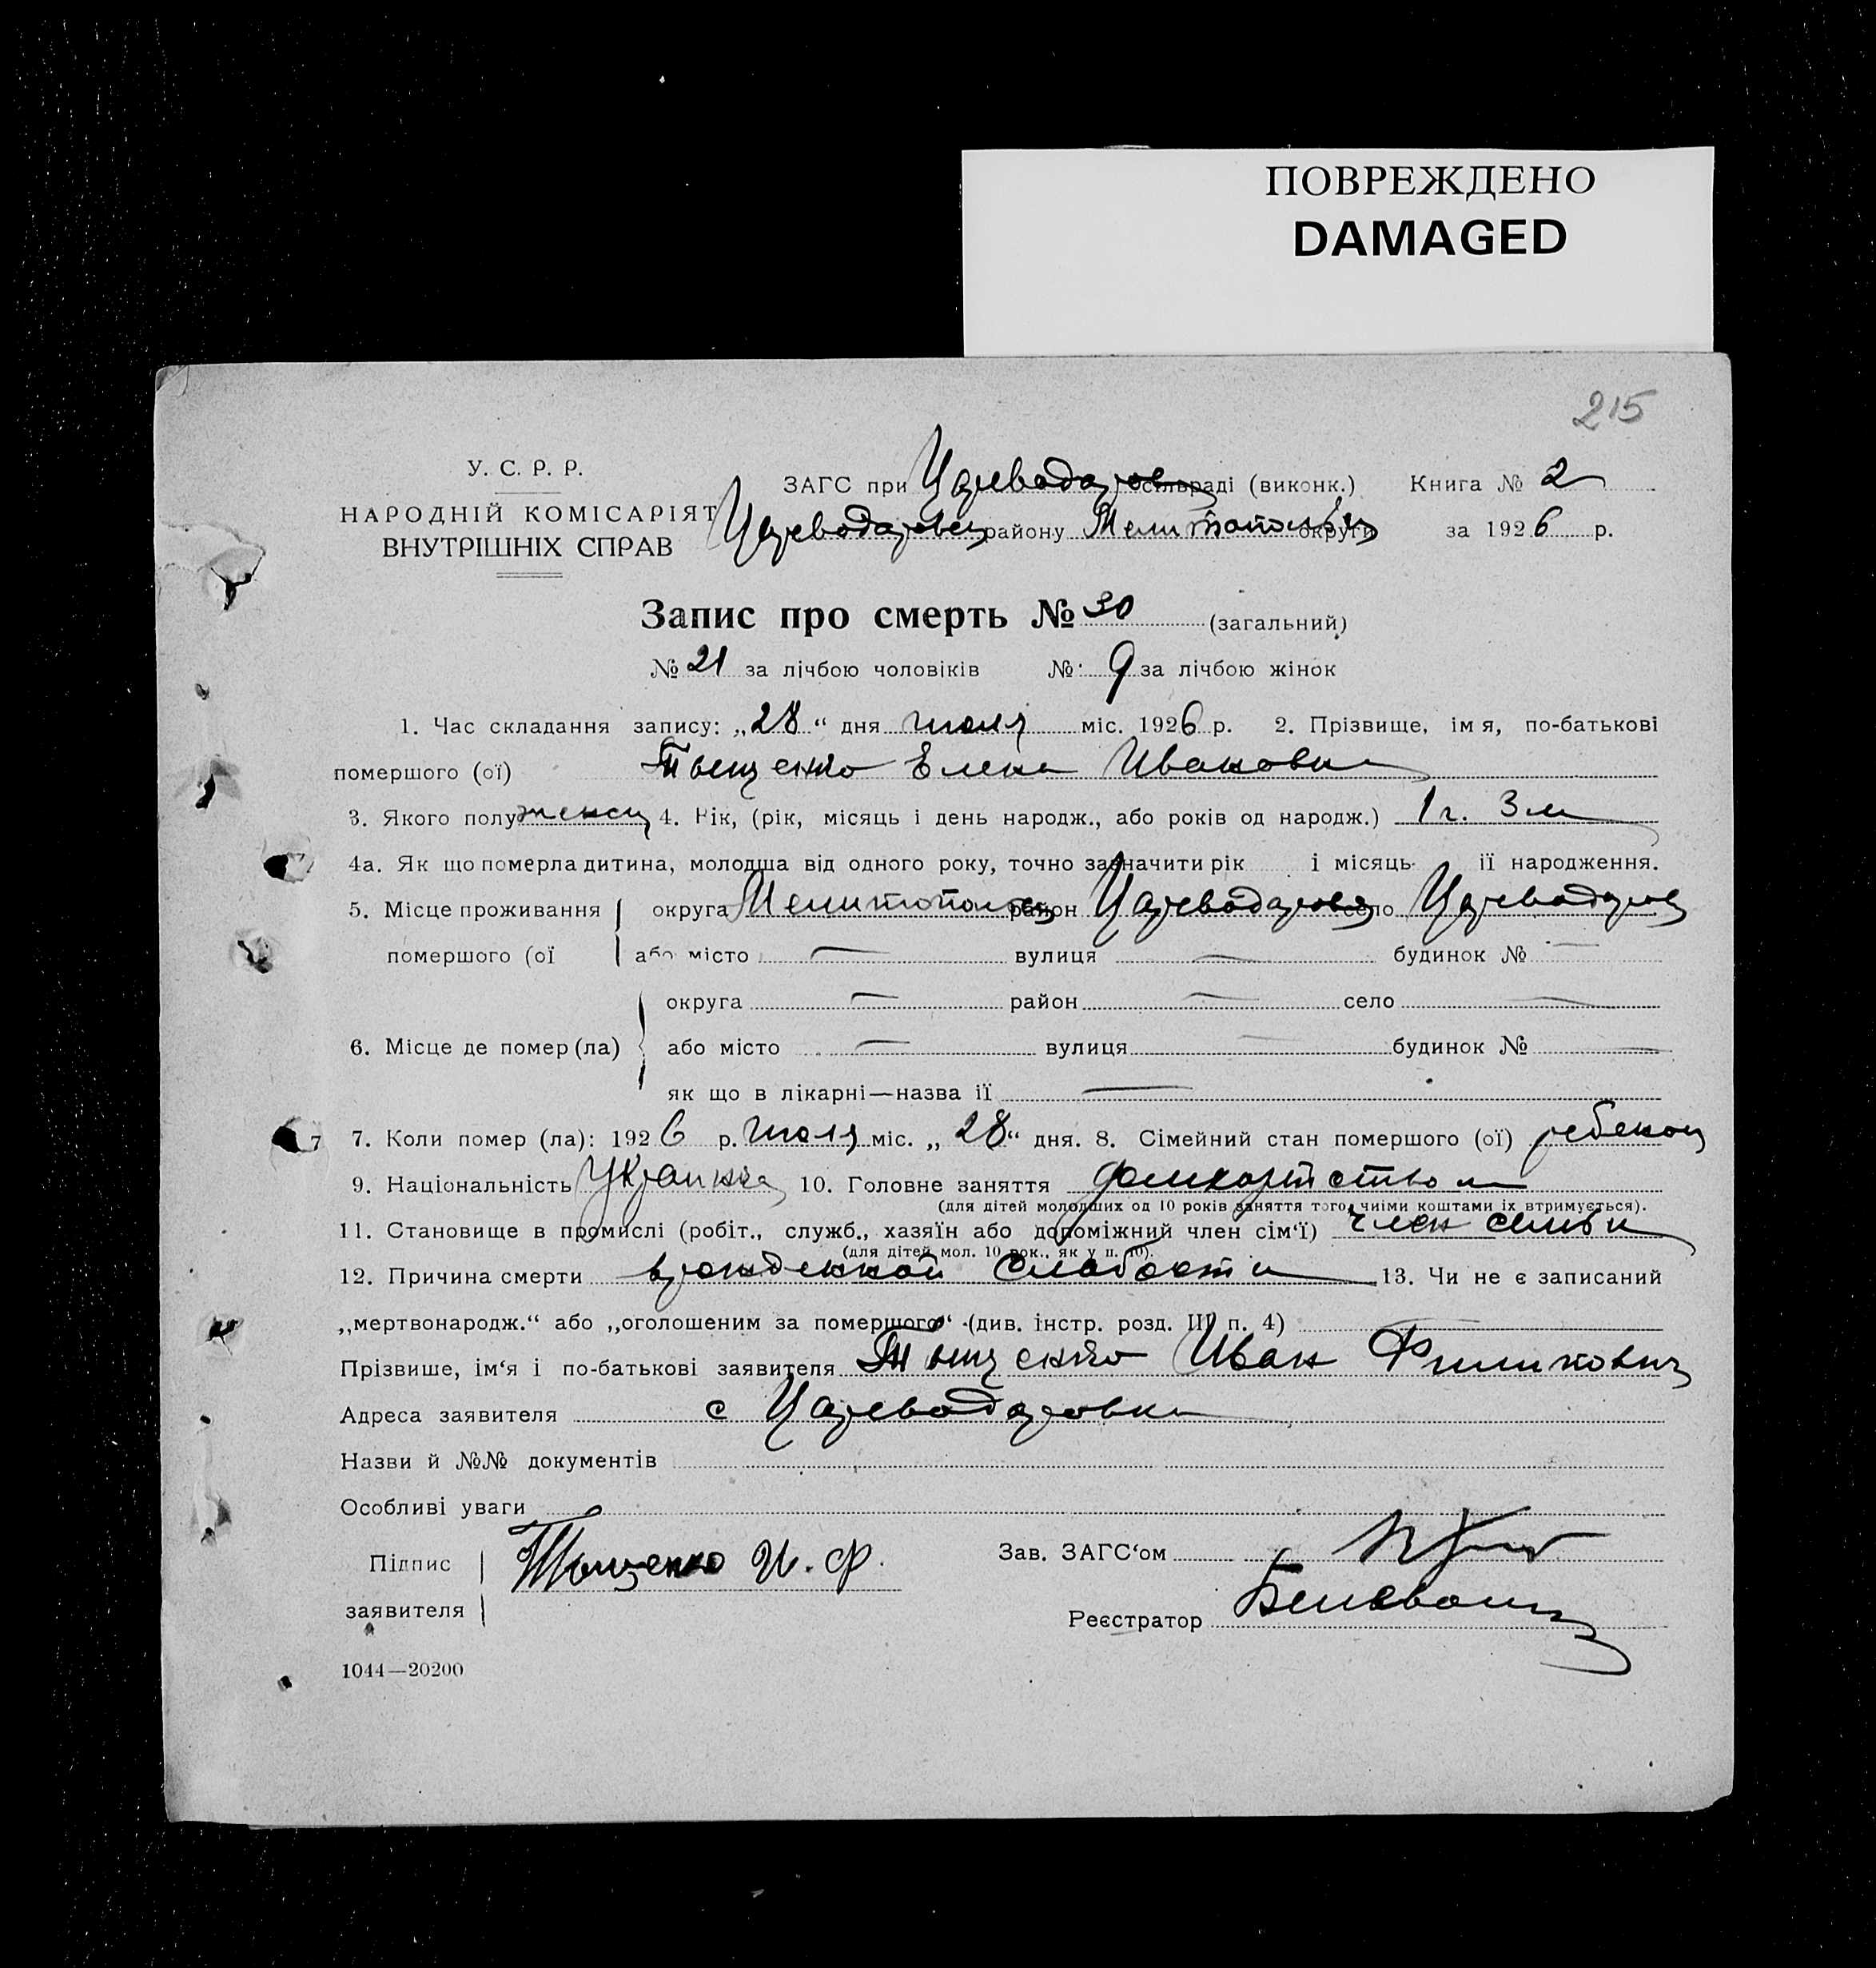 ПОВРЕЖДЕНО
DAMAGED
215
У. С. Р. Р.
НАРОДНІЙ КОМІСАРІЯТ
ВНУТРІШНІХ СПРАВ
ЗАГС при Царевода сільраді (виконк.) Книга № 2
району Мелитопольск округи за 1926 р.
Запис про смерть № 30 (загальний)
№ 21 за лічбою чоловіків № 9 за лічбою жінок
1. Час складання запису: „28“ дня июля міс. 1926 р. 2. Прізвище, імя, по-батькові
помершого (ої) Тыщенко Елена Ивановна
3. Якого полу женск 4. Вік, (рік, місяць і день народж., або років од народж.) 1 г. 3 м
4а. Як що померла дитина, молодша від одного року, точно зазначити рік і місяць її народження.
5. Місце проживання округа район село
помершого (ої або місто — вулиця — будинок № —
округа — район — село —
6. Місце де помер (ла) або місто — вулиця — будинок № —
як що в лікарні—назва її —
7 7. Коли помер (ла): 1926 р. июля міс. „28“ дня. 8. Сімейний стан помершого (ої) ребенок
9. Національність Украинка 10. Головне заняття
(для дітей молодших од 10 років заняття того, чиіми коштами їх втримується).
11. Становище в промислі (робіт., служб., хазяїн або допоміжний член сім‘ї) член семьи
(для дітей мол. 10 рок., як у п. 10).
12. Причина смерти врожденной слабости 13. Чи не є записаний
„мертвонародж.“ або „оголошеним за помершого“ (див. інстр. розд. III п. 4)
Прізвише, ім‘я і по-батькові заявителя Тыщенко Иван Филипович
Адреса заявителя с Цареводаровка
Назви й №№ документів
Особливі уваги
Підпис Тыщенко И. Ф. Зав. ЗАГС‘ом
заявителя Реєстратор
1044—20200